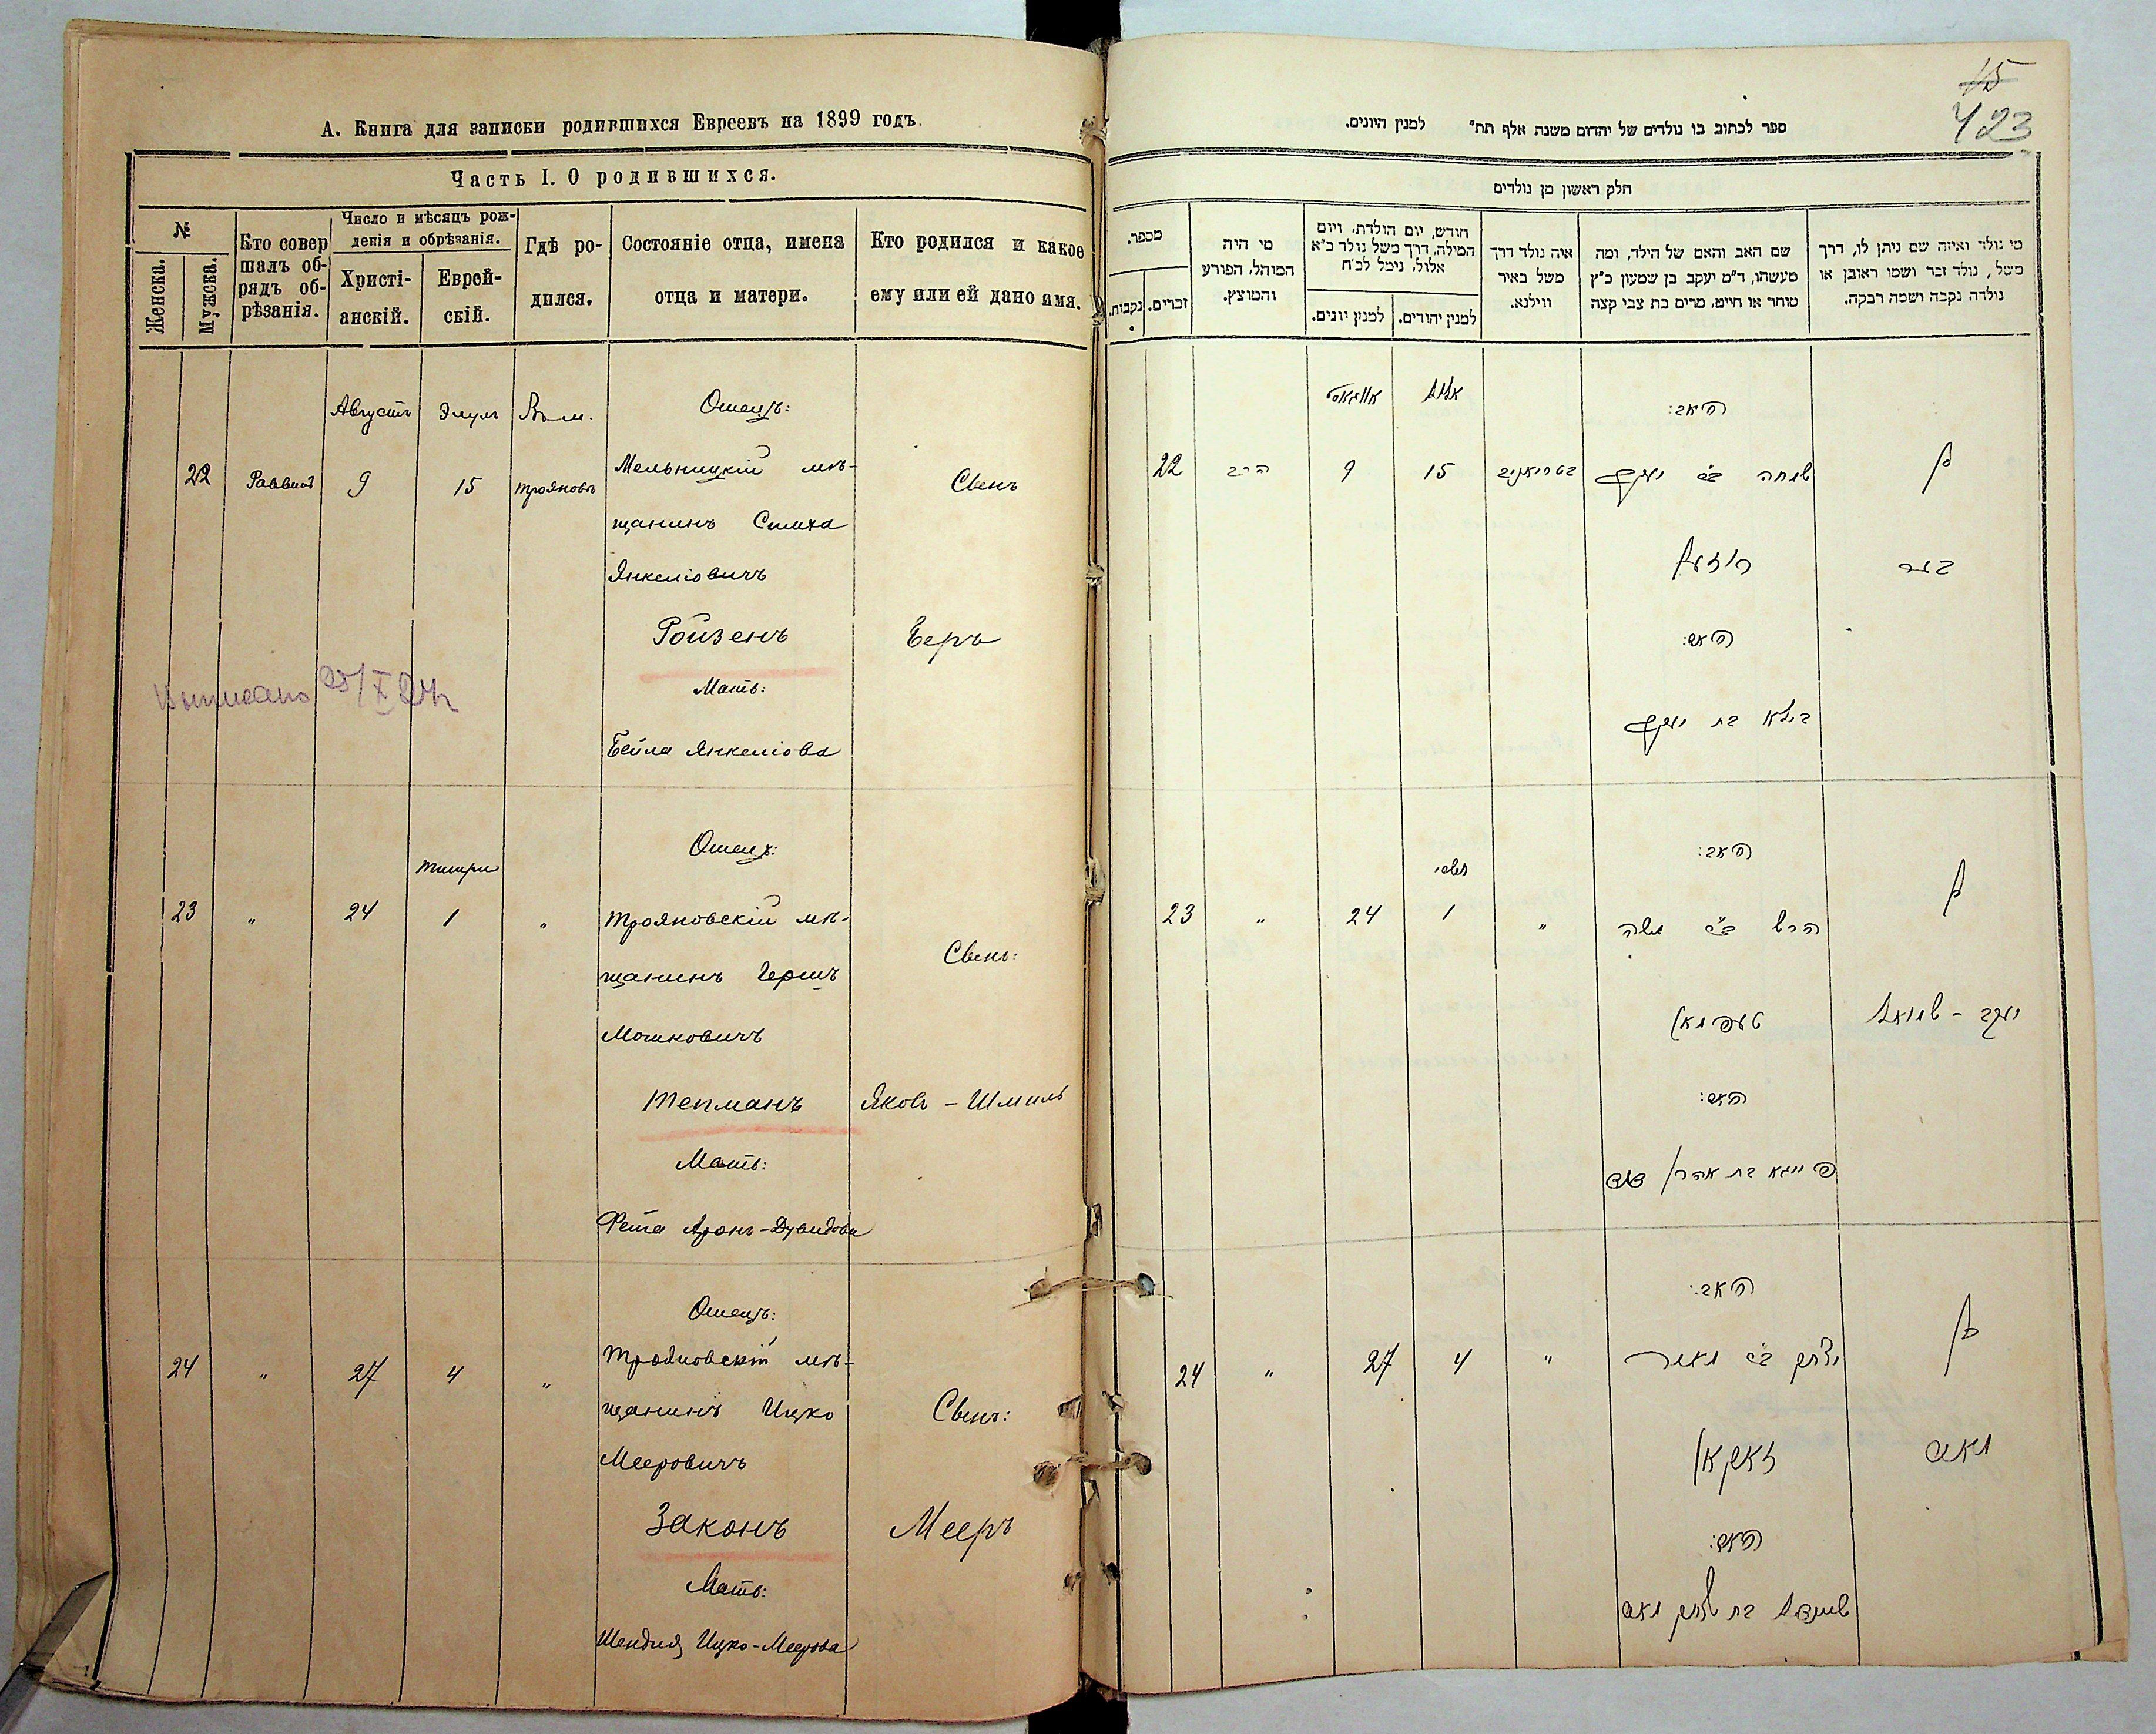 А. Книга для записки родившихся Евреевъ на 1899 годъ.
Часть I. О родившихся.
№
Женска.
Мужска.
Кто совер
шалъ об-
рядъ об-
рѣзанія.
Число и мѣсяцъ рож-
денія и обрѣзанія.
Христі-
анскій.
Еврей-
скій.
Гдѣ ро-
дился.
Состояніе отца, имена
отца и матери.
Кто родился и какое
ему или ей дано имя.
Августъ Элулъ Въ м. Отецъ:
22 Раввинъ 9 15 Трояновъ Мельницкій мѣ-
Свенъ
щанинъ Симха
Янкеліовичъ
Ройзенъ Беръ
Мать:
Выписано 25/X
Бейла Янкеліова
Отецъ:
Тишри
23 " 24 1 " Трояновскій мѣ-
Свенъ:
щанинъ Гершъ
Мошковичъ
Тепманъ Яковъ - Шмиль
Мать:
Фейга Аронъ-Дувидова
Отецъ:
24 " 27 4 " Трояновскій мѣ-
щанинъ Ицко Свенъ:
Мееровичъ
Законъ Мееръ
Мать:
Шендля Ицко-Меерова
15
423
ספר לכתוב בו נולדים של יהדום משנה אלף תת״ למנין היונים.
חלק ראשון מן נולדים
מספר.
נקבות.
זכרים.
מי היה
המוהל, הפורע
והמוצץ.
חודש, יום הולדת, ויום
המילה, דרך משל נולד כ״א
אלול, נימל לכ״ח
למנין יונים.
למנין יהודים.
איה נולד דרך
משל באיר
ווילנא.
שם האב והאם של הילד, ומה
מעשהו, ד״מ יעקב בן שמעון כ״ץ
סוחר או חייט, מרים בת צבי קצה
מי נולד ואיזה שם ניתן לו, דרך
משל, נולד זכר ושמו ראובן או
נולדה נקבה ושמה רבקה.
אויגוסט אלול האב:
22 הרב 9 15 שמחה ב״ר יענקל בן
רויזען בער
האם:
ביילא בת יענקל
האב:
תשרי
23 " 24 1 " הרש ב״ר משה בן
טעפמאן יעקב - שמואל
האם:
פייגא בת אהרן דוד
האב:
24 " 27 4 " יצחק ב״ר מאיר בן
זאקאן מאיר
האם:
שיינדל בת יצחק מאיר